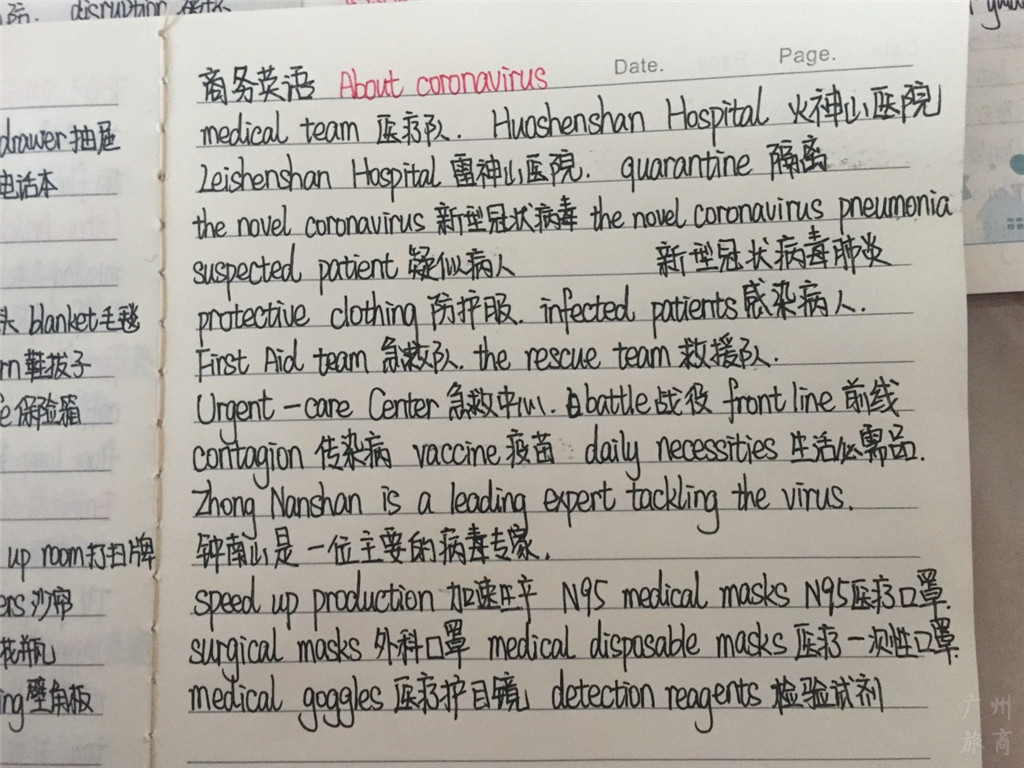 disruption
商务英语 About coronavirus Date. Page.
medical team 医疗队. Huoshenshan Hospital 火神山医院
Leishenshan Hospital 雷神山医院. quarantine 隔离
the novel coronavirus 新型冠状病毒 the novel coronavirus pneumonia
suspected patient 疑似病人 新型冠状病毒肺炎
protective clothing 防护服. infected patients 感染病人.
First Aid team 急救队. the rescue team 救援队.
Urgent-care Center 急救中心. battle 战役 front line 前线
contagion 传染病 vaccine 疫苗 daily necessities 生活必需品.
Zhong Nanshan is a leading expert tackling the virus.
钟南山是一位主要的病毒专家.
speed up production 加速生产 N95 medical masks N95医疗口罩.
surgical masks 外科口罩 medical disposable masks 医疗一次性口罩.
medical goggles 医疗护目镜 detection reagents 检验试剂
drawer 抽屉
电话本
头 blanket 毛毯
rn 鞋拔子
e 保险箱
up room 打扫牌
ers 沙帘
花瓶
ing 壁角板
广州
旅商